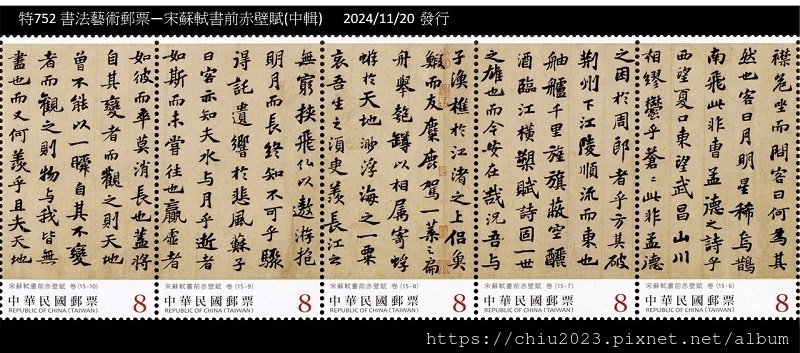 特752 書法藝術郵票—宋蘇軾書前赤壁賦(中輯) 2024/11/20 發行
襟危坐而問客曰何為其
然也客曰月明星稀烏鵲
南飛此非曹孟德之詩乎
西望夏口東望武昌山川
相繆鬱乎蒼蒼此非孟德
宋蘇軾書前赤壁賦 卷 (15-6)
中華民國郵票 8
REPUBLIC OF CHINA (TAIWAN)
之困於周郎者乎方其破
荊州下江陵順流而東也
舳艫千里旌旗蔽空釃
酒臨江橫槊賦詩固一世
之雄也而今安在哉況吾與
宋蘇軾書前赤壁賦 卷 (15-7)
中華民國郵票 8
REPUBLIC OF CHINA (TAIWAN)
子漁樵於江渚之上侶魚
鰕而友麋鹿駕一葉之扁
舟舉匏罇以相屬寄蜉
蝣於天地渺浮海之一粟
哀吾生之須臾羨長江之
宋蘇軾書前赤壁賦 卷 (15-8)
中華民國郵票 8
REPUBLIC OF CHINA (TAIWAN)
無窮挾飛仙以遨遊抱
明月而長終知不可乎驟
得託遺響於悲風蘇子
曰客亦知夫水與月乎逝者
如斯而未嘗往也贏虛者
宋蘇軾書前赤壁賦 卷 (15-9)
中華民國郵票 8
REPUBLIC OF CHINA (TAIWAN)
如彼而卒莫消長也蓋將
自其變者而觀之則天地
曾不能以一瞬自其不變
者而觀之則物與我皆無
盡也而又何羨乎且夫天地
宋蘇軾書前赤壁賦 卷 (15-10)
中華民國郵票 8
REPUBLIC OF CHINA (TAIWAN)
https://chiu2023.pixnet.net/album